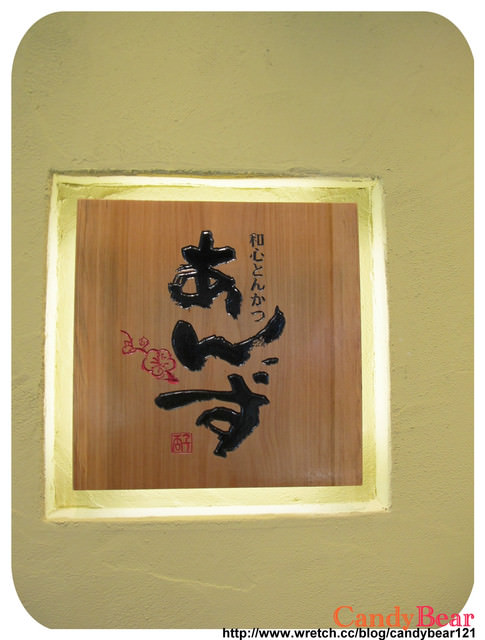 和心とんかつ
あんず
杏子
CandyBear
http://www.wretch.cc/blog/candybear121